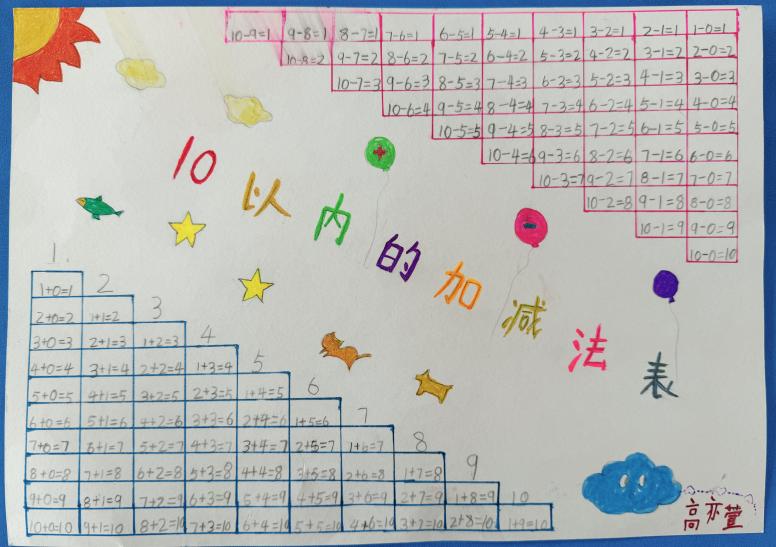 10-9=1 9-8=1 8-7=1 7-6=1 6-5=1 5-4=1 4-3=1 3-2=1 2-1=1 1-0=1
10-8=2 9-7=2 8-6=2 7-5=2 6-4=2 5-3=2 4-2=2 3-1=2 2-0=2
10-7=3 9-6=3 8-5=3 7-4=3 6-3=3 5-2=3 4-1=3 3-0=3
10-6=4 9-5=4 8-4=4 7-3=4 6-2=4 5-1=4 4-0=4
10-5=5 9-4=5 8-3=5 7-2=5 6-1=5 5-0=5
10-4=6 9-3=6 8-2=6 7-1=6 6-0=6
10-3=7 9-2=7 8-1=7 7-0=7
10-2=8 9-1=8 8-0=8
10-1=9 9-0=9
10-0=10
10以内的加减法表
1
1+0=1 2
2+0=2 1+1=2 3
3+0=3 2+1=3 1+2=3 4
4+0=4 3+1=4 2+2=4 1+3=4 5
5+0=5 4+1=5 3+2=5 2+3=5 1+4=5 6
6+0=6 5+1=6 4+2=6 3+3=6 2+4=6 1+5=6 7
7+0=7 6+1=7 5+2=7 4+3=7 3+4=7 2+5=7 1+6=7 8
8+0=8 7+1=8 6+2=8 5+3=8 4+4=8 3+5=8 2+6=8 1+7=8 9
9+0=9 8+1=9 7+2=9 6+3=9 5+4=9 4+5=9 3+6=9 2+7=9 1+8=9 10
10+0=10 9+1=10 8+2=10 7+3=10 6+4=10 5+5=10 4+6=10 3+2=10 2+8=10 1+9=10
高亦萱